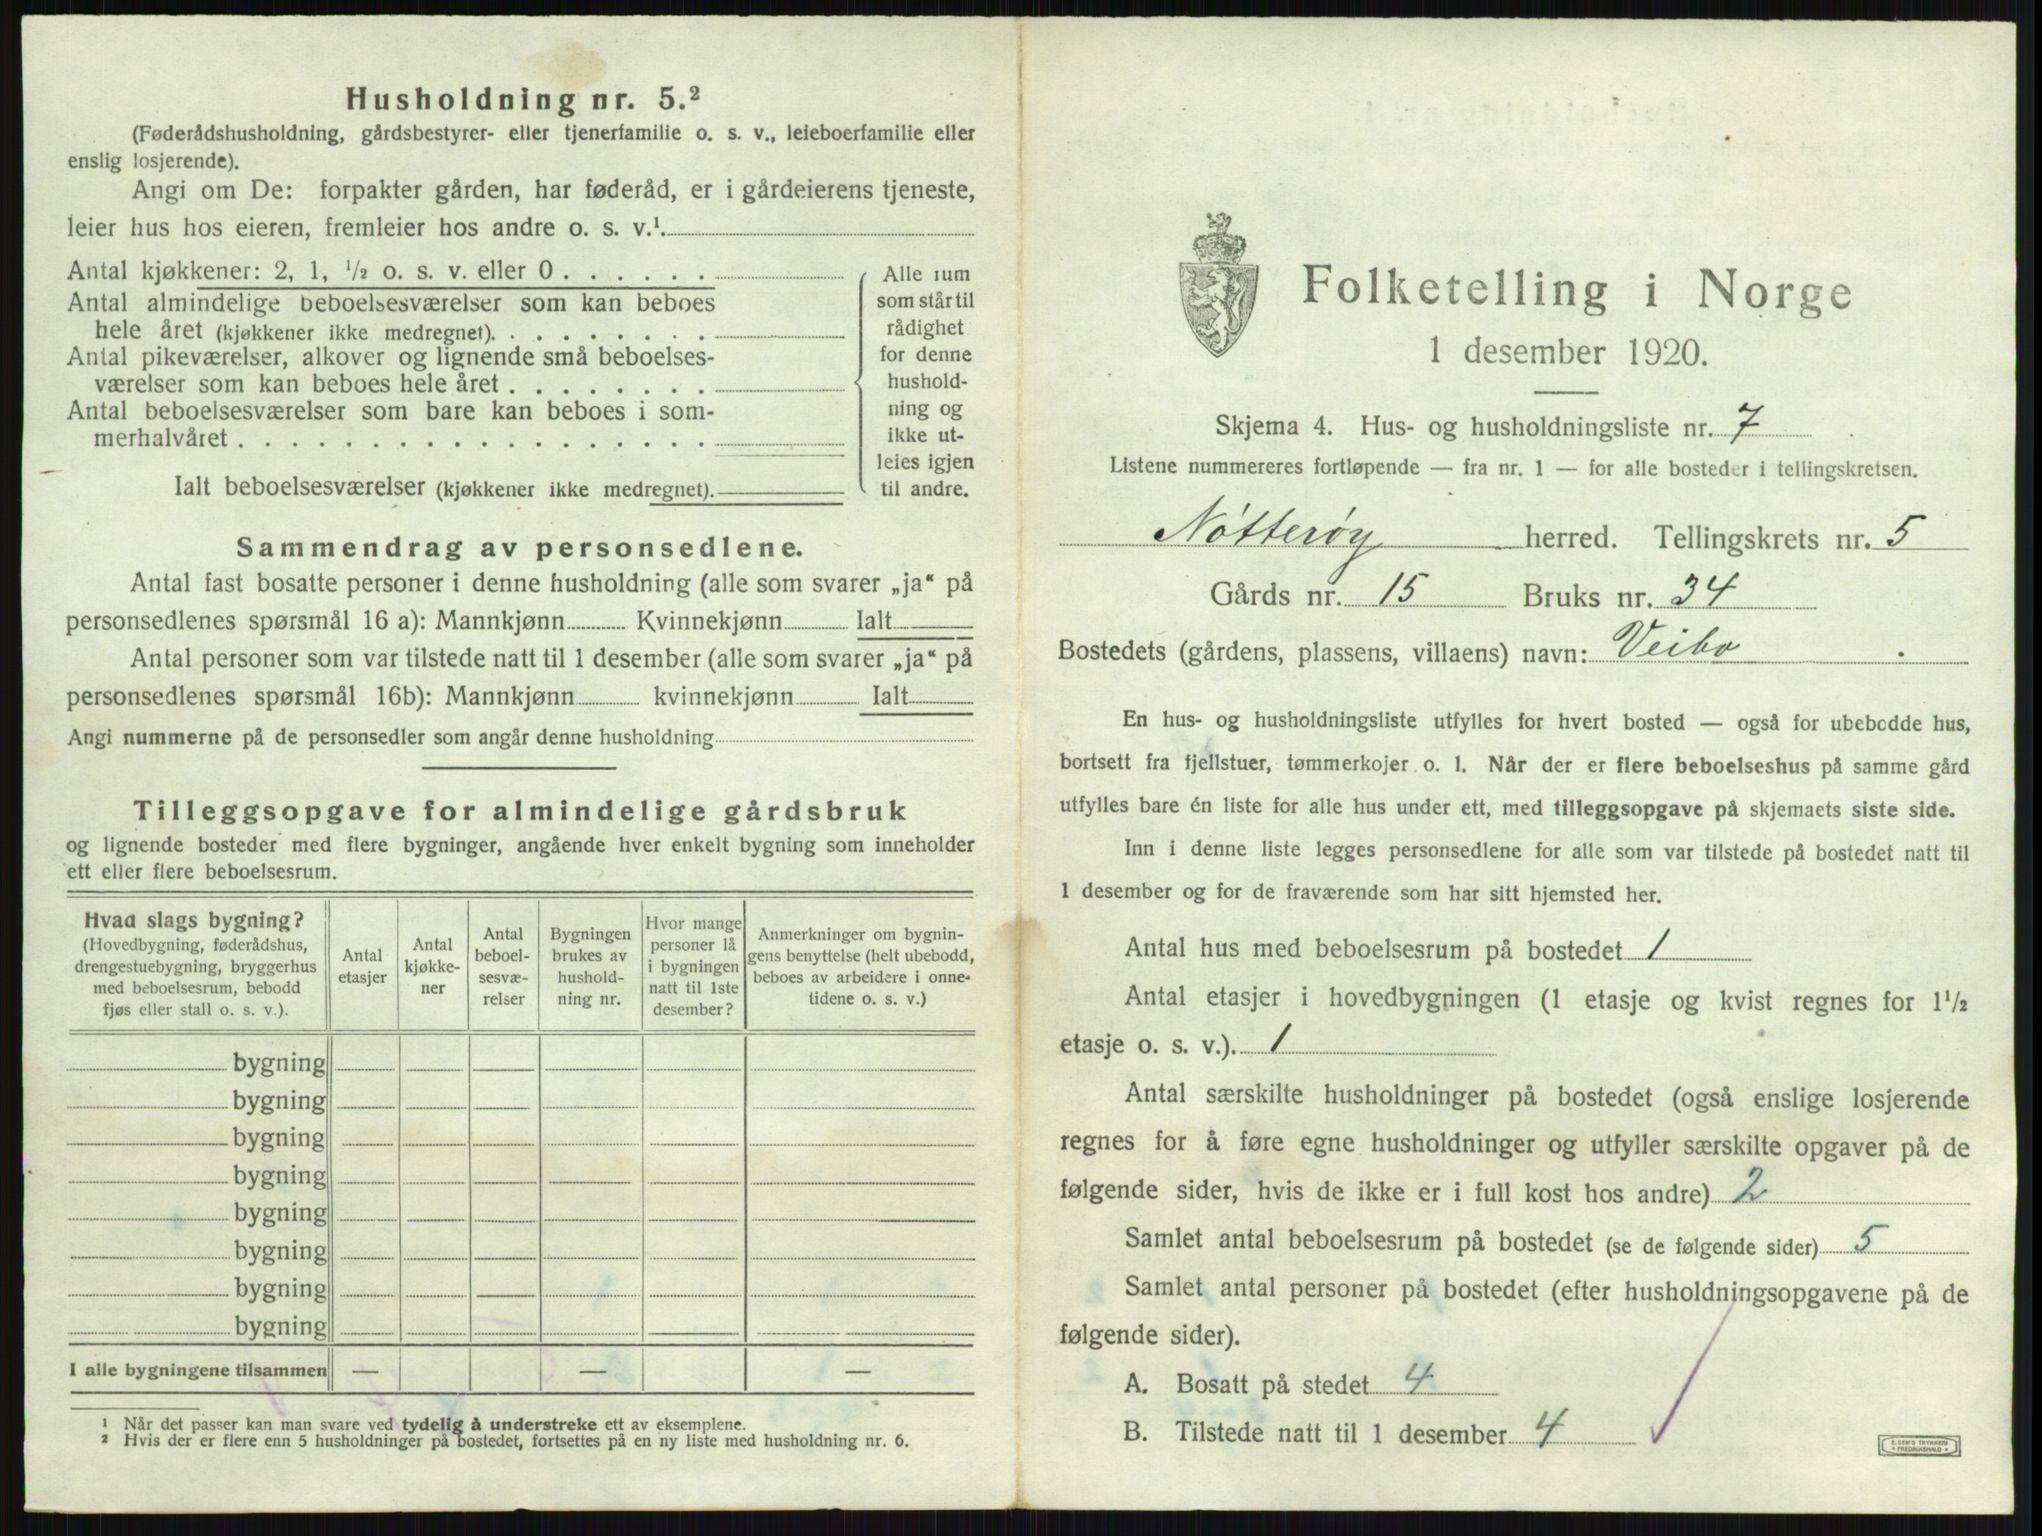 Husholdning nr. 5.²
(Føderådshusholdning, gårdsbestyrer- eller tjenerfamilie o. s. v., leieboerfamilie eller
enslig losjerende).
Angi om De: forpakter gården, har føderåd, er i gårdeierens tjeneste,
leier hus hos eieren, fremleier hos andre o. s. v.¹
Antal kjøkkener: 2, 1, ½ o. s. v. eller 0 . . . . . .
Antal almindelige beboelsesværelser som kan beboes
hele året (kjøkkener ikke medregnet). . . . . . . . .
Antal pikeværelser, alkover og lignende små beboelses-
værelser som kan beboes hele året . . . . . . . .
Antal beboelsesværelser som bare kan beboes i som-
merhalvåret . . . . . . . . . . . . . . . . . .
Ialt beboelsesværelser (kjøkkener ikke medregnet).
Alle rum
som står til
rådighet
for denne
hushold-
ning og
ikke ut-
leies igjen
til andre.
Sammendrag av personsedlene.
Antal fast bosatte personer i denne husholdning (alle som svarer „ja“ på
personsedlenes spørsmål 16 a): Mannkjønn Kvinnekjønn Ialt
Antal personer som var tilstede natt til 1 desember (alle som svarer „ja“ på
personsedlenes spørsmål 16b): Mannkjønn kvinnekjønn Ialt
Angi nummerne på de personsedler som angår denne husholdning
Tilleggsopgave for almindelige gårdsbruk
og lignende bosteder med flere bygninger, angående hver enkelt bygning som inneholder
ett eller flere beboelsesrum.
Hvad slags bygning?
(Hovedbygning, føderådshus,
drengestuebygning, bryggerhus
med beboelsesrum, bebodd
fjøs eller stall o. s. v.).
Antal
etasjer
Antal
kjøkke-
ner
Antal
beboel-
sesvæ-
relser
Bygningen
brukes av
hushold-
ning nr.
Hvor mange
personer lå
i bygningen
natt til 1ste
desember?
Anmerkninger om bygnin-
gens benyttelse (helt ubebodd,
beboes av arbeidere i onne-
tidene o. s. v.)
bygning
bygning
bygning
bygning
bygning
bygning
bygning
bygning
I alle bygningene tilsammen — — —
¹ Når det passer kan man svare ved tydelig å understreke ett av eksemplene.
² Hvis der er flere enn 5 husholdninger på bostedet, fortsettes på en ny liste med husholdning nr. 6.
Folketelling i Norge
1 desember 1920.
Skjema 4. Hus- og husholdningsliste nr. 7
Listene nummereres fortløpende — fra nr. 1 — for alle bosteder i tellingskretsen.
Nøtterøy herred. Tellingskrets nr. 5
Gårds nr. 15 Bruks nr. 34
Bostedets (gårdens, plassens, villaens) navn: Veibo
En hus- og husholdningsliste utfylles for hvert bosted — også for ubebodde hus,
bortsett fra fjellstuer, tømmerkojer o. l. Når der er flere beboelseshus på samme gård
utfylles bare én liste for alle hus under ett, med tilleggsopgave på skjemaets siste side.
Inn i denne liste legges personsedlene for alle som var tilstede på bostedet natt til
1 desember og for de fraværende som har sitt hjemsted her.
Antal hus med beboelsesrum på bostedet 1
Antal etasjer i hovedbygningen (1 etasje og kvist regnes for 1½
etasje o. s. v.). 1
Antal særskilte husholdninger på bostedet (også enslige losjerende
regnes for å føre egne husholdninger og utfyller særskilte opgaver på de
følgende sider, hvis de ikke er i full kost hos andre) 2
Samlet antal beboelsesrum på bostedet (se de følgende sider) 5
Samlet antal personer på bostedet (efter husholdningsopgavene på de
følgende sider).
A. Bosatt på stedet 4
B. Tilstede natt til 1 desember 4
E. SEM'S TRYKKERI
• FREDRIKSHALD •